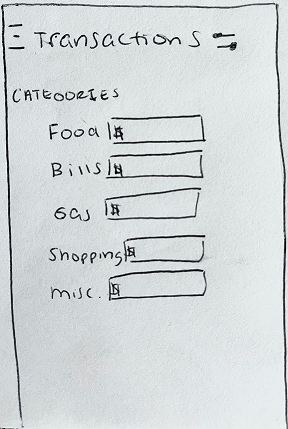 Transactions
CATEGORIES
Food $
Bills $
Gas $
Shopping $
misc. $